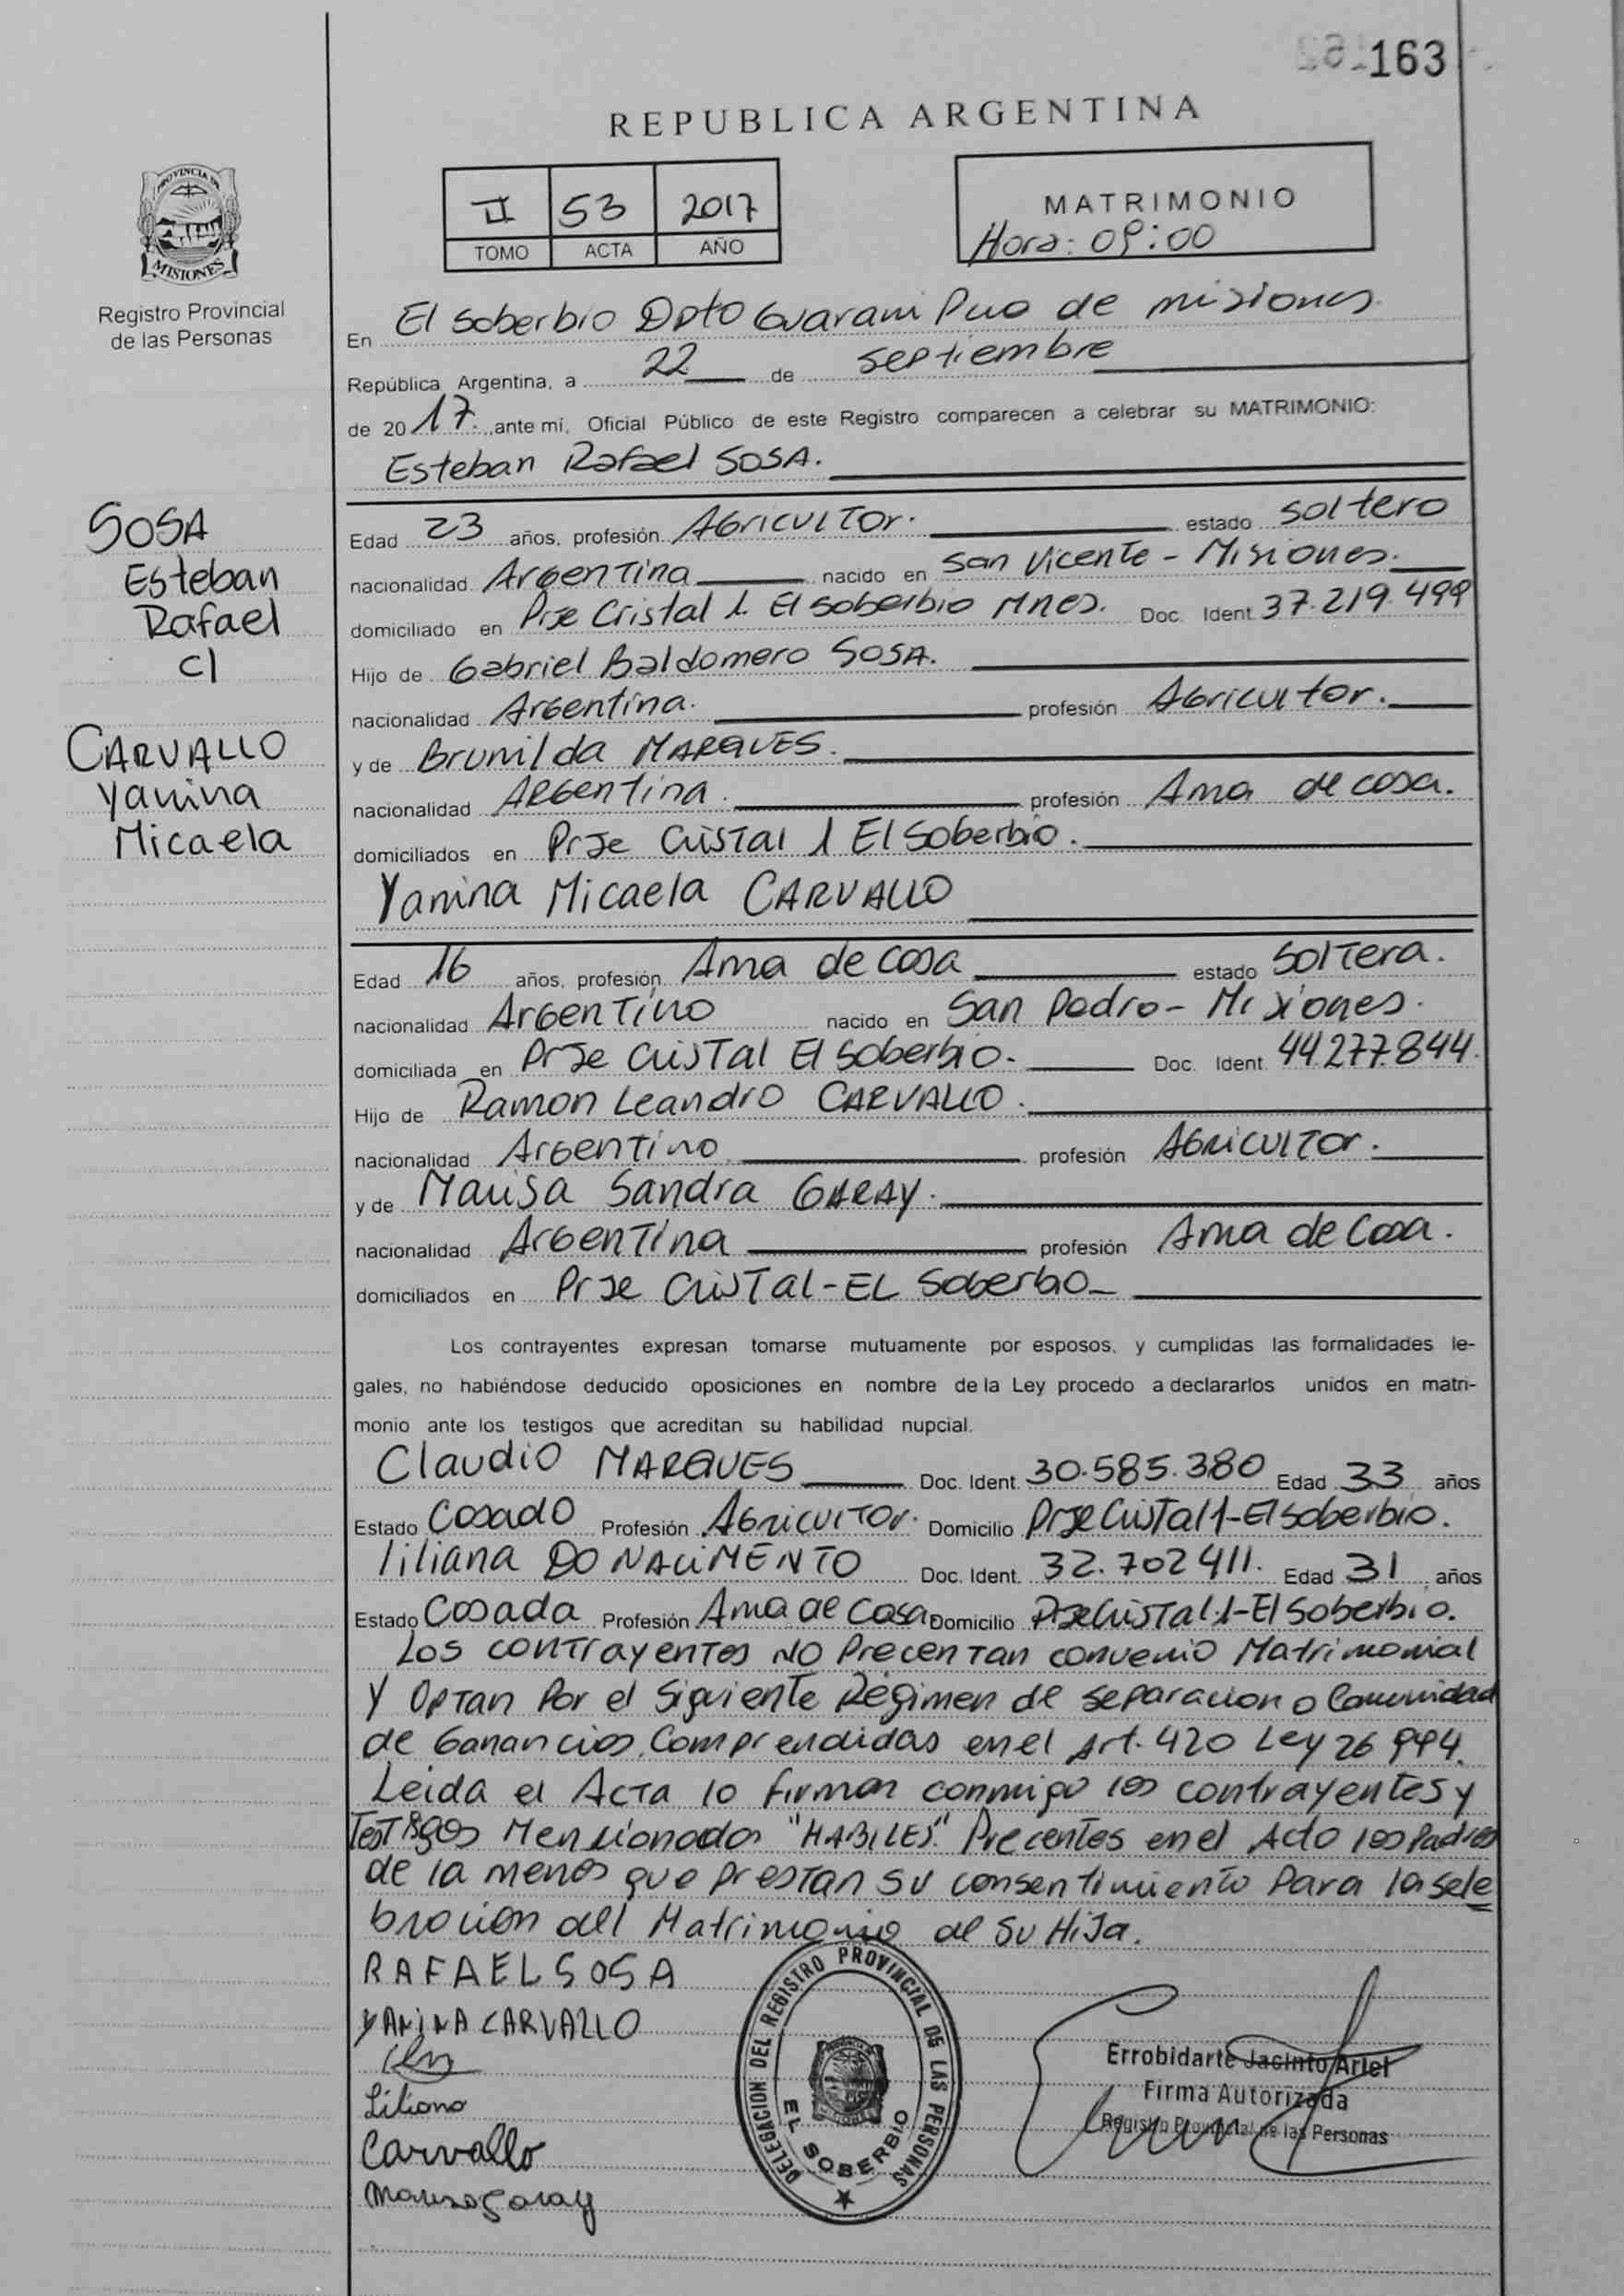 163
REPUBLICA ARGENTINA
PROVINCIA DE
MISIONES
Registro Provincial
de las Personas
II 53 2017
TOMO ACTA AÑO
MATRIMONIO
Hora: 09:00
En El Soberbio Dpto Guarani Pcia de Misiones
República Argentina, a 22 de Septiembre
de 2017. ante mí, Oficial Público de este Registro comparecen a celebrar su MATRIMONIO:
Esteban Rafael SOSA.
SOSA
Esteban
Rafael
c/
CARVALLO
Yanina
Micaela
Edad 23 años, profesión Agricultor. estado Soltero
nacionalidad Argentina nacido en San Vicente - Misiones.
domiciliado en Prje Cristal 1. El Soberbio Mnes. Doc. Ident. 37.219.499
Hijo de Gabriel Baldomero SOSA.
nacionalidad Argentina. profesión Agricultor.
y de Brunilda MARQUES.
nacionalidad Argentina. profesión Ama de casa.
domiciliados en Prje Cristal 1 El Soberbio.
Yanina Micaela CARVALLO
Edad 16 años, profesión Ama de casa estado Soltera.
nacionalidad Argentino nacido en San Pedro - Misiones.
domiciliada en Prje Cristal El Soberbio. Doc. Ident. 44.277.844.
Hijo de Ramon Leandro CARVALLO.
nacionalidad Argentino profesión Agricultor.
y de Marisa Sandra GARAY.
nacionalidad Argentina profesión Ama de Casa.
domiciliados en Prje Cristal - EL Soberbio
Los contrayentes expresan tomarse mutuamente por esposos, y cumplidas las formalidades le-
gales, no habiéndose deducido oposiciones en nombre de la Ley procedo a declararlos unidos en matri-
monio ante los testigos que acreditan su habilidad nupcial.
Claudio MARQUES Doc. Ident. 30.585.380 Edad 33 años
Estado Casado Profesión Agricultor. Domicilio Prje Cristal 1 - El Soberbio.
Liliana DO NACIMENTO Doc. Ident. 32.702411. Edad 31 años
Estado Casada Profesión Ama de Casa Domicilio Prje Cristal 1 - El Soberbio.
Los contrayentes NO Precentan convenio Matrimonial
Y Optan Por el Siguiente Régimen de Separacion o Comunidad
de Ganancias. Comprendidas en el Art. 420 Ley 26 994.
Leida el Acta lo firman conmigo los contrayentes y
Testigos Mencionados "HABILES". Precentes en el Acto los Padres
de la menos que prestan su consentimiento Para la sele
bracion del Matrimonio de Su Hija.
RAFAEL SOSA
YANINA CARVALLO
Liliana
Carvallo
Marisa Garay
DELEGACION DEL REGISTRO PROVINCIAL DE LAS PERSONAS
EL SOBERBIO
Errobidarte Jacinto Ariel
Firma Autorizada
Registro Provincial de las Personas